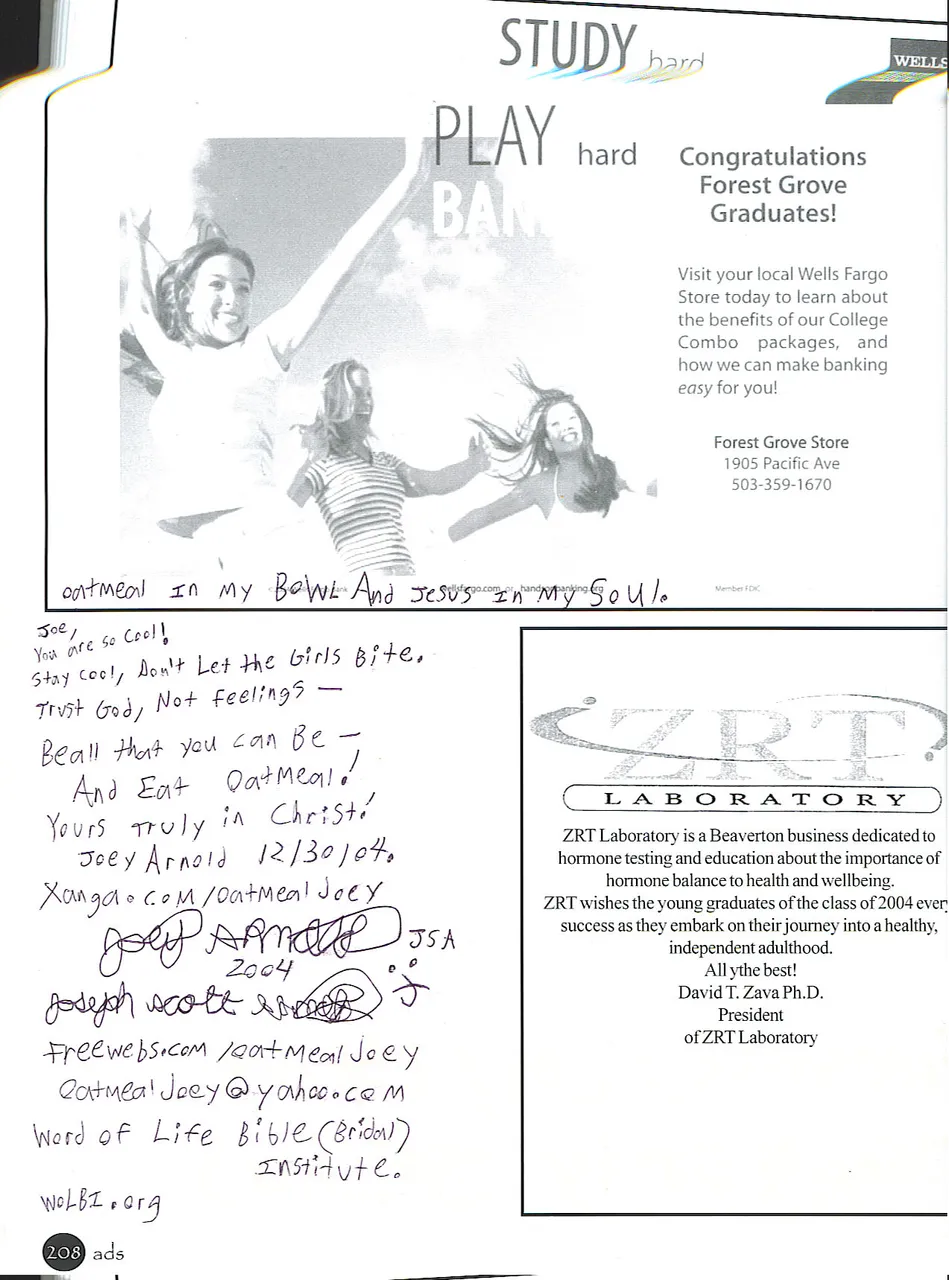 STUDY hard
WELLS
PLAY hard
BAN
Congratulations
Forest Grove
Graduates!
Visit your local Wells Fargo
Store today to learn about
the benefits of our College
Combo packages, and
how we can make banking
easy for you!
Forest Grove Store
1905 Pacific Ave
503-359-1670
wellsfargo.com or handsonbanking.org
Member FDIC
oatmeal In My BOWL And Jesus In My SoUl.
Joe,
You are so Cool!
Stay Cool, Don't Let the Girls Bite.
Trust God, Not Feelings —
Be all that you can Be —
And Eat Oatmeal!
Yours Truly in Christ!
Joey Arnold 12/30/04.
Xanga.com/oatmealJoey
Joey Arnold JSA
2004
Joseph Scott
freewebs.com/oatmealJoey
oatmealJoey@yahoo.com
Word of Life Bible (Bridal)
Institute.
WOLBI.org
ZRT
LABORATORY
ZRT Laboratory is a Beaverton business dedicated to
hormone testing and education about the importance of
hormone balance to health and wellbeing.
ZRT wishes the young graduates of the class of 2004 ever
success as they embark on their journey into a healthy,
independent adulthood.
All ythe best!
David T. Zava Ph.D.
President
of ZRT Laboratory
208 ads